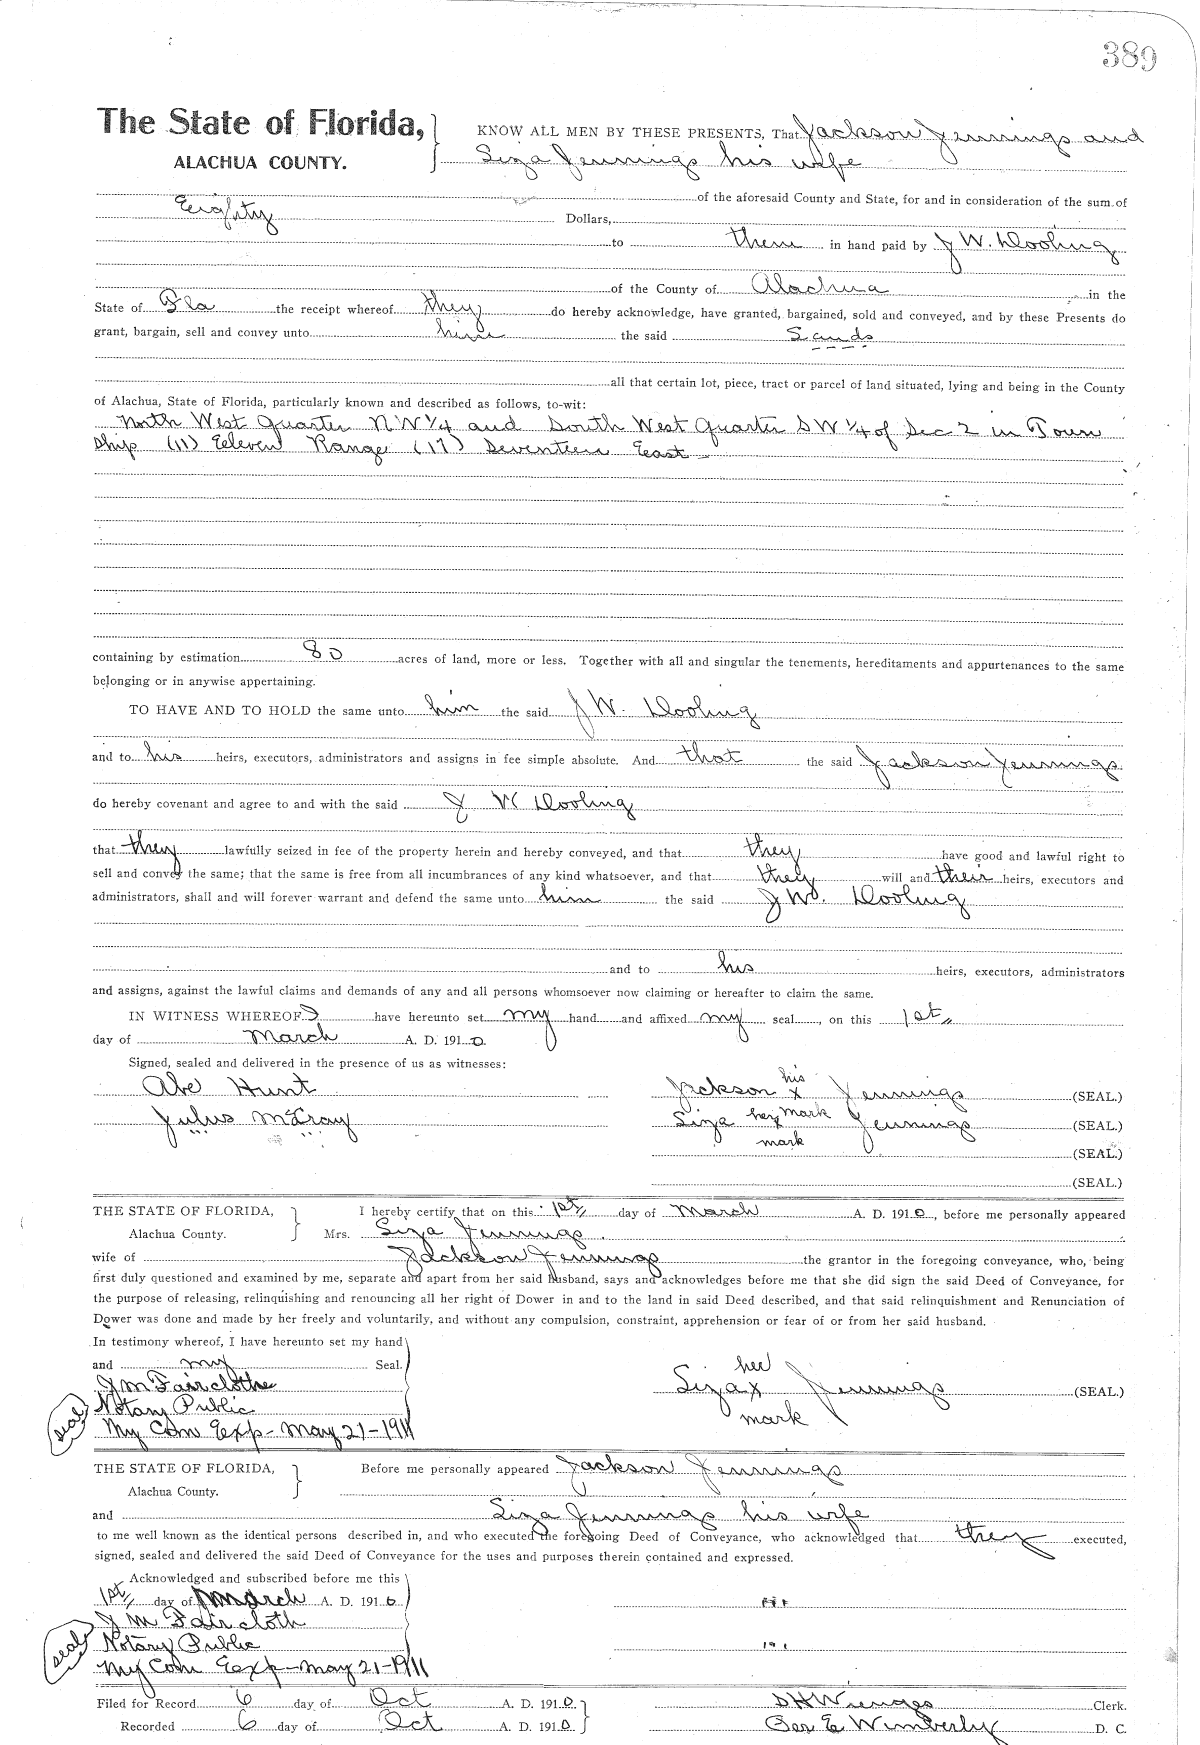 389
The State of Florida, KNOW ALL MEN BY THESE PRESENTS, That Jackson Jennings and
ALACHUA COUNTY. Siza Jennings his wife
of the aforesaid County and State, for and in consideration of the sum of
Eeighty Dollars,
to them in hand paid by J W. Dooling
of the County of Alachua in the
State of Fla the receipt whereof they do hereby acknowledge, have granted, bargained, sold and conveyed, and by these Presents do
grant, bargain, sell and convey unto him the said Sands
all that certain lot, piece, tract or parcel of land situated, lying and being in the County
of Alachua, State of Florida, particularly known and described as follows, to-wit:
North West Quarter NW 1/4 and South West Quarter SW 1/4 of Sec 2 in Town
Ship (11) Eeleven Range (17) Seventeen East
containing by estimation 80 acres of land, more or less. Together with all and singular the tenements, hereditaments and appurtenances to the same
belonging or in anywise appertaining.
TO HAVE AND TO HOLD the same unto him the said J W. Dooling
and to his heirs, executors, administrators and assigns in fee simple absolute. And that the said Jackson Jennings
do hereby covenant and agree to and with the said J W Dooling
that they lawfully seized in fee of the property herein and hereby conveyed, and that they have good and lawful right to
sell and convey the same; that the same is free from all incumbrances of any kind whatsoever, and that they will and their heirs, executors and
administrators, shall and will forever warrant and defend the same unto him the said J W. Dooling
and to his heirs, executors, administrators
and assigns, against the lawful claims and demands of any and all persons whomsoever now claiming or hereafter to claim the same.
IN WITNESS WHEREOF I have hereunto set my hand and affixed my seal, on this 1st
day of March A. D. 1910.
Signed, sealed and delivered in the presence of us as witnesses:
Abe Hunt Jackson his x Jennings (SEAL.)
Julus McCray Siza her x mark Jennings (SEAL.)
mark (SEAL.)
(SEAL.)
THE STATE OF FLORIDA, I hereby certify that on this 1st day of March A. D. 1910, before me personally appeared
Alachua County. Mrs. Siza Jennings
wife of Jackson Jennings the grantor in the foregoing conveyance, who, being
first duly questioned and examined by me, separate and apart from her said husband, says and acknowledges before me that she did sign the said Deed of Conveyance, for
the purpose of releasing, relinquishing and renouncing all her right of Dower in and to the land in said Deed described, and that said relinquishment and Renunciation of
Dower was done and made by her freely and voluntarily, and without any compulsion, constraint, apprehension or fear of or from her said husband.
In testimony whereof, I have hereunto set my hand
and my Seal.
J M Faircloth
her
Siza x Jennings (SEAL.)
mark
Notary Public
seal My Com Exp- May 21-1911
THE STATE OF FLORIDA, Before me personally appeared Jackson Jennings
Alachua County.
and Siza Jennings his wife
to me well known as the identical persons described in, and who executed the foregoing Deed of Conveyance, who acknowledged that they executed,
signed, sealed and delivered the said Deed of Conveyance for the uses and purposes therein contained and expressed.
Acknowledged and subscribed before me this
1st day of March A. D. 1910
J M Faircloth
seal Notary Public
My Com Eexp-May 21-1911
Filed for Record 6 day of Oct A. D. 1910. S H Wienges Clerk.
Recorded 6 day of Oct A. D. 1910 Geo E Wimberly D. C.